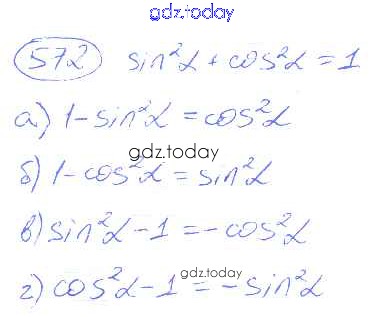 gdz.today
572 sin²α + cos²α = 1
а) 1 - sin²α = cos²α
gdz.today
б) 1 - cos²α = sin²α
в) sin²α - 1 = - cos²α
gdz.today
г) cos²α - 1 = - sin²α